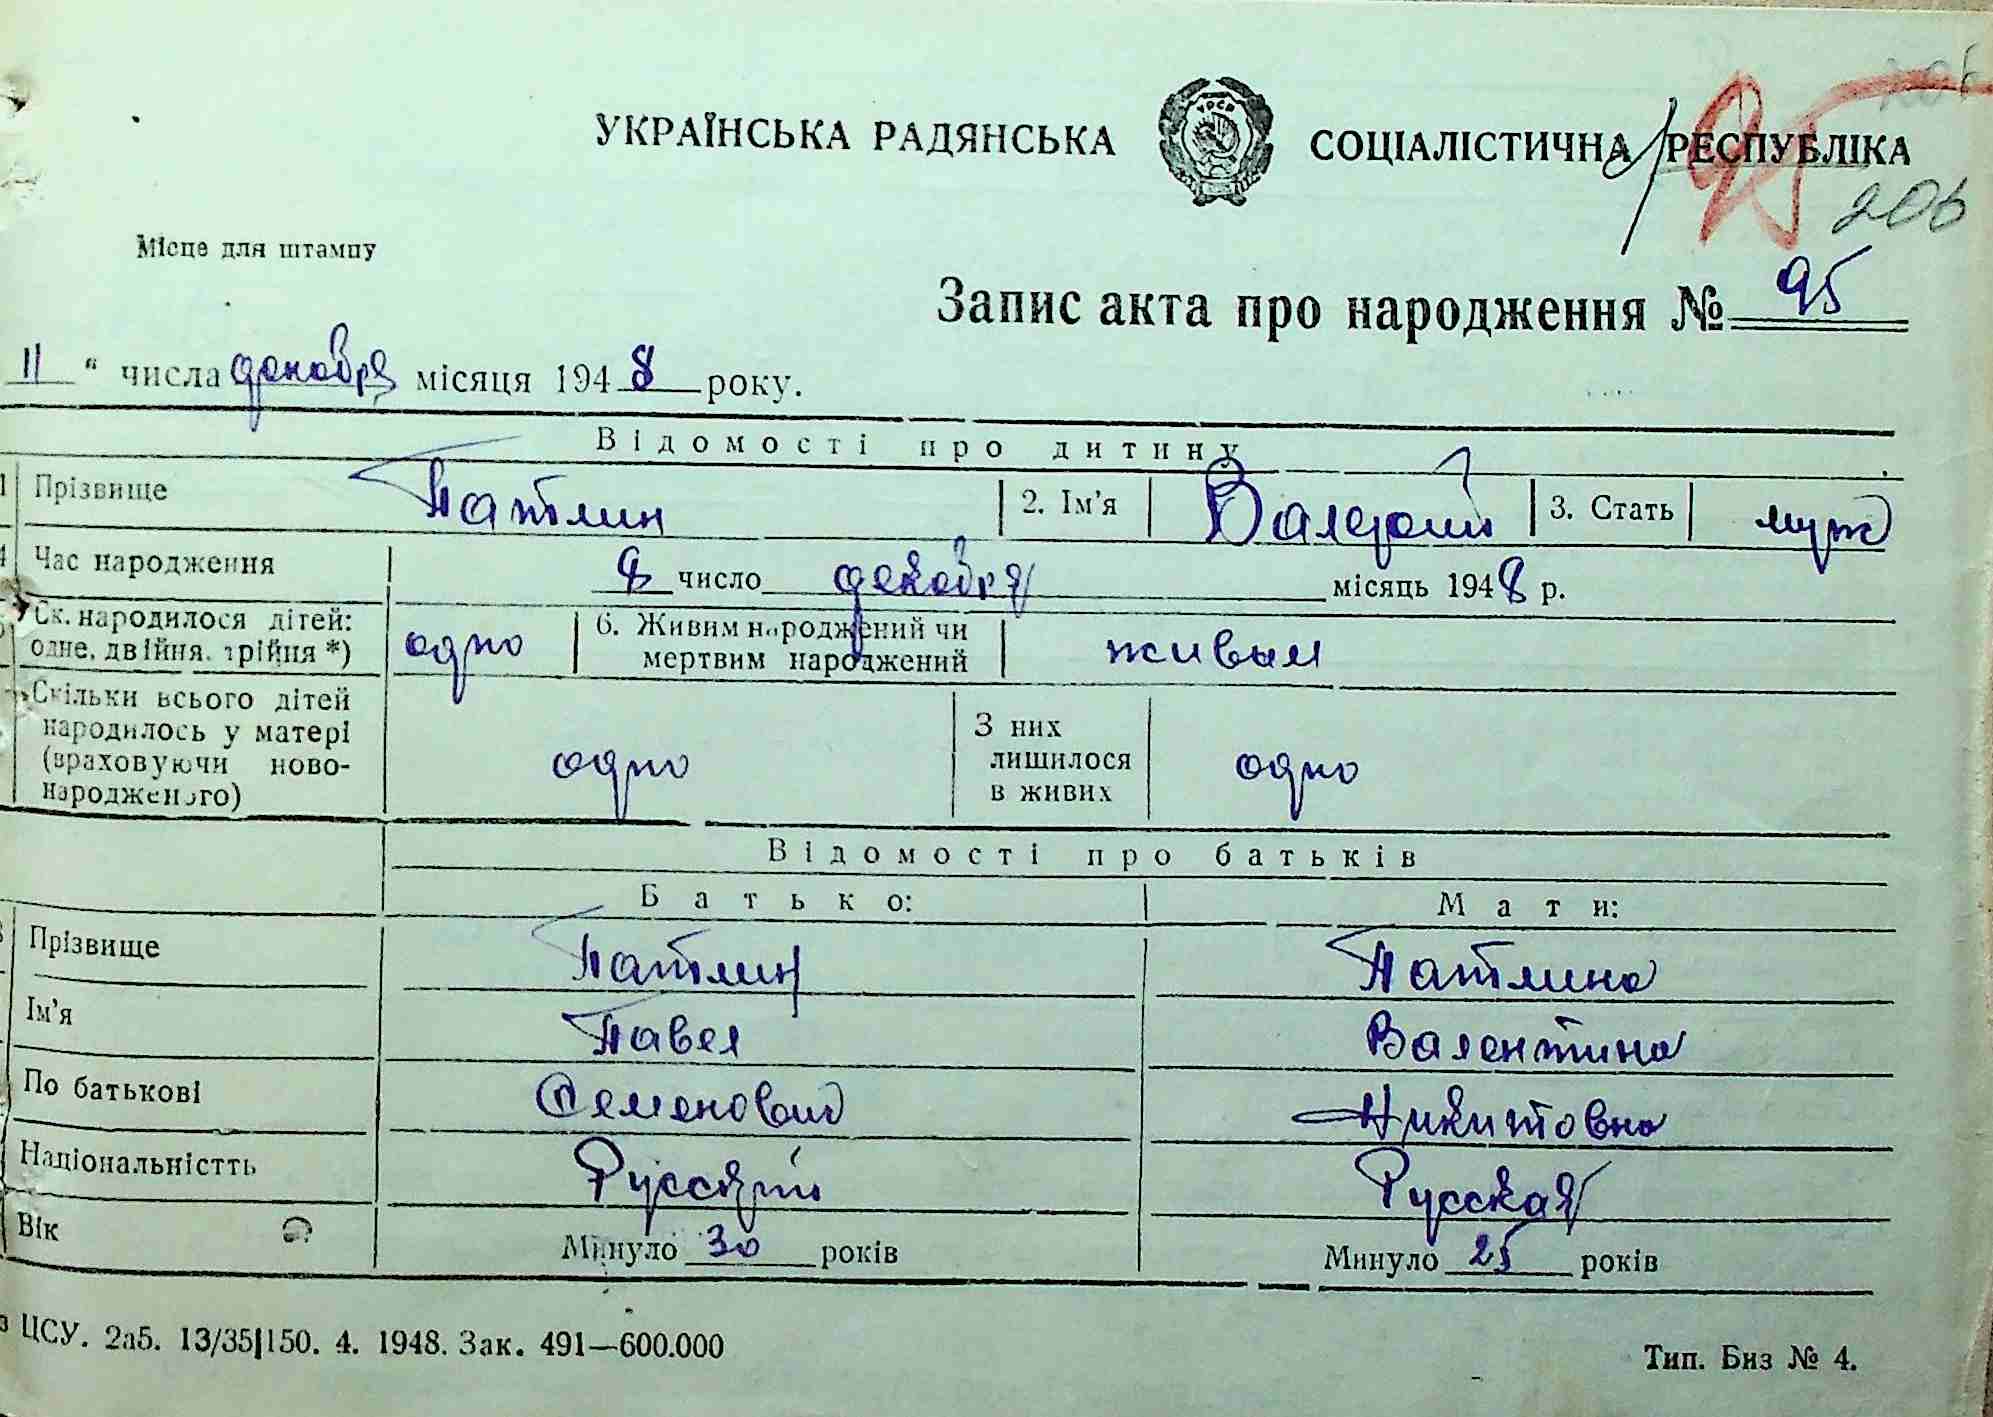 206
УКРАЇНСЬКА РАДЯНСЬКА СОЦІАЛІСТИЧНА РЕСПУБЛІКА
УРСР
95
206
Місце для штампу
Запис акта про народження № 95
11 " числа декабря місяця 1948 року.
Відомості про дитину
1 Прізвище Патлин 2. Ім'я Валерий 3. Стать муж
4 Час народження 8 число декабря місяць 1948 р.
Ск. народилося дітей: одне, двійня, трійня *) одно 6. Живим народжений чи мертвим народжений живым
Скільки всього дітей народилось у матері (враховуючи новонародженого) одно З них лишилося в живих одно
Відомості про батьків
Батько: Мати:
Прізвище Патлин Патлина
Ім'я Павел Валентина
По батькові Семенович Никитовна
Національністть Русский Русская
Вік Минуло 30 років Минуло 25 років
з ЦСУ. 2а5. 13/35|150. 4. 1948. Зак. 491—600.000 Тип. Биз № 4.